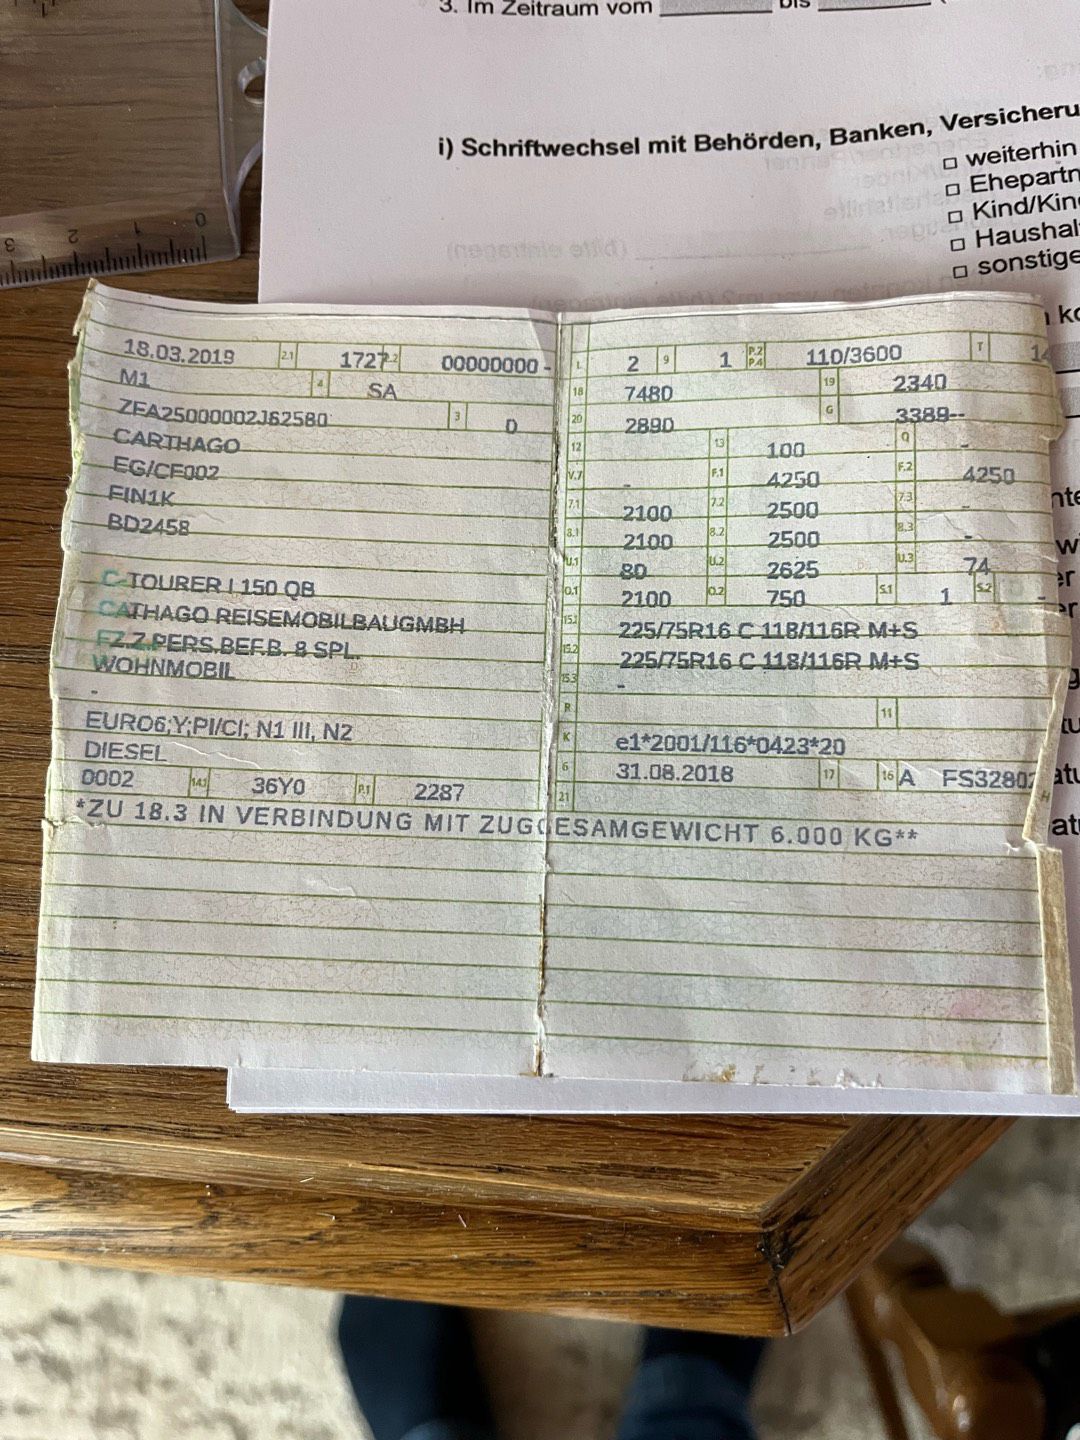 3. Im Zeitraum vom ________ bis ________
i) Schriftwechsel mit Behörden, Banken, Versicheru
□ weiterhin
□ Ehepartn
□ Kind/Kin
□ Haushal
□ sonstige
(bitte eintragen)
0 1 2 3
18.03.2019 2.1 1727 2.2 00000000 - L 2 9 1 P.2 P.4 110/3600 T 14
M1 4 SA 18 7480 19 2340
ZFA25000002J62580 3 D 20 2890 G 3389--
CARTHAGO 12 - 13 100 Q -
EG/CF002 V.7 - F.1 4250 F.2 4250
FIN1K 7.1 2100 7.2 2500 7.3 -
BD2458 8.1 2100 8.2 2500 8.3 -
U.1 80 U.2 2625 U.3 74
C-TOURER I 150 QB O.1 2100 O.2 750 S.1 1 S.2 -
CATHAGO REISEMOBILBAUGMBH 15.1 225/75R16 C 118/116R M+S
FZ.Z.PERS.BEF.B. 8 SPL. 15.2 225/75R16 C 118/116R M+S
WOHNMOBIL 15.3 -
- R 11
EURO6;Y;PI/CI; N1 III, N2 K e1*2001/116*0423*20
DIESEL 6 31.08.2018 17 16 A FS32802
0002 14.1 36Y0 P.1 2287 21
*ZU 18.3 IN VERBINDUNG MIT ZUGGESAMGEWICHT 6.000 KG**